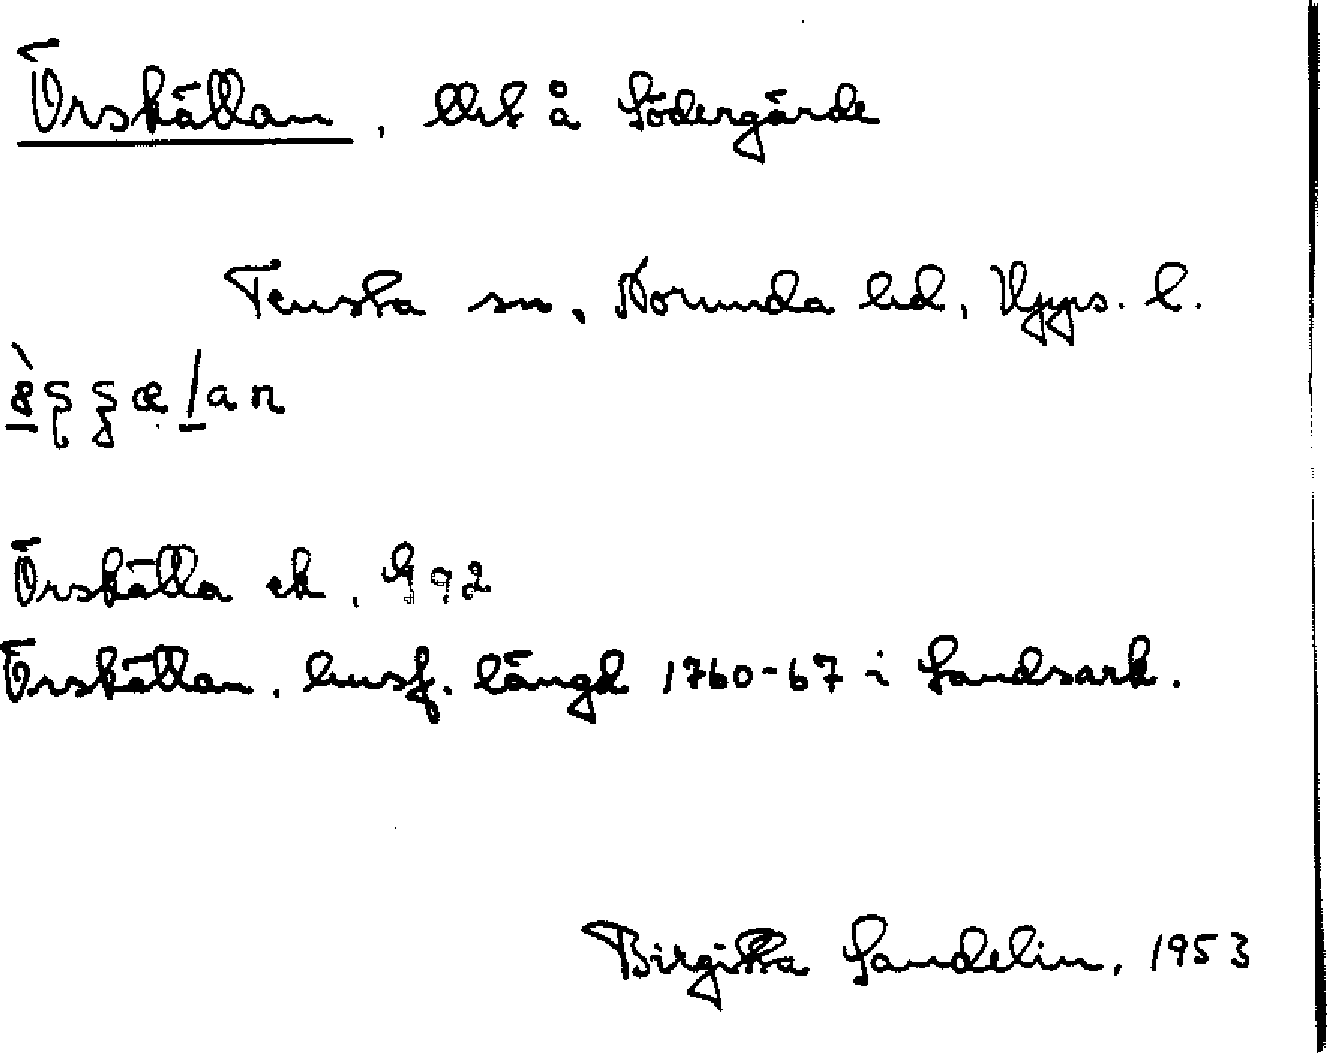 Örskällan, tht å Södergärde
Tensta sn, Norunda hd, Upps. l.
Örskälla ek, G 92
Örskällan, husf. längd 1760-67 i Landsark.
Birgitta Sandelin, 1953